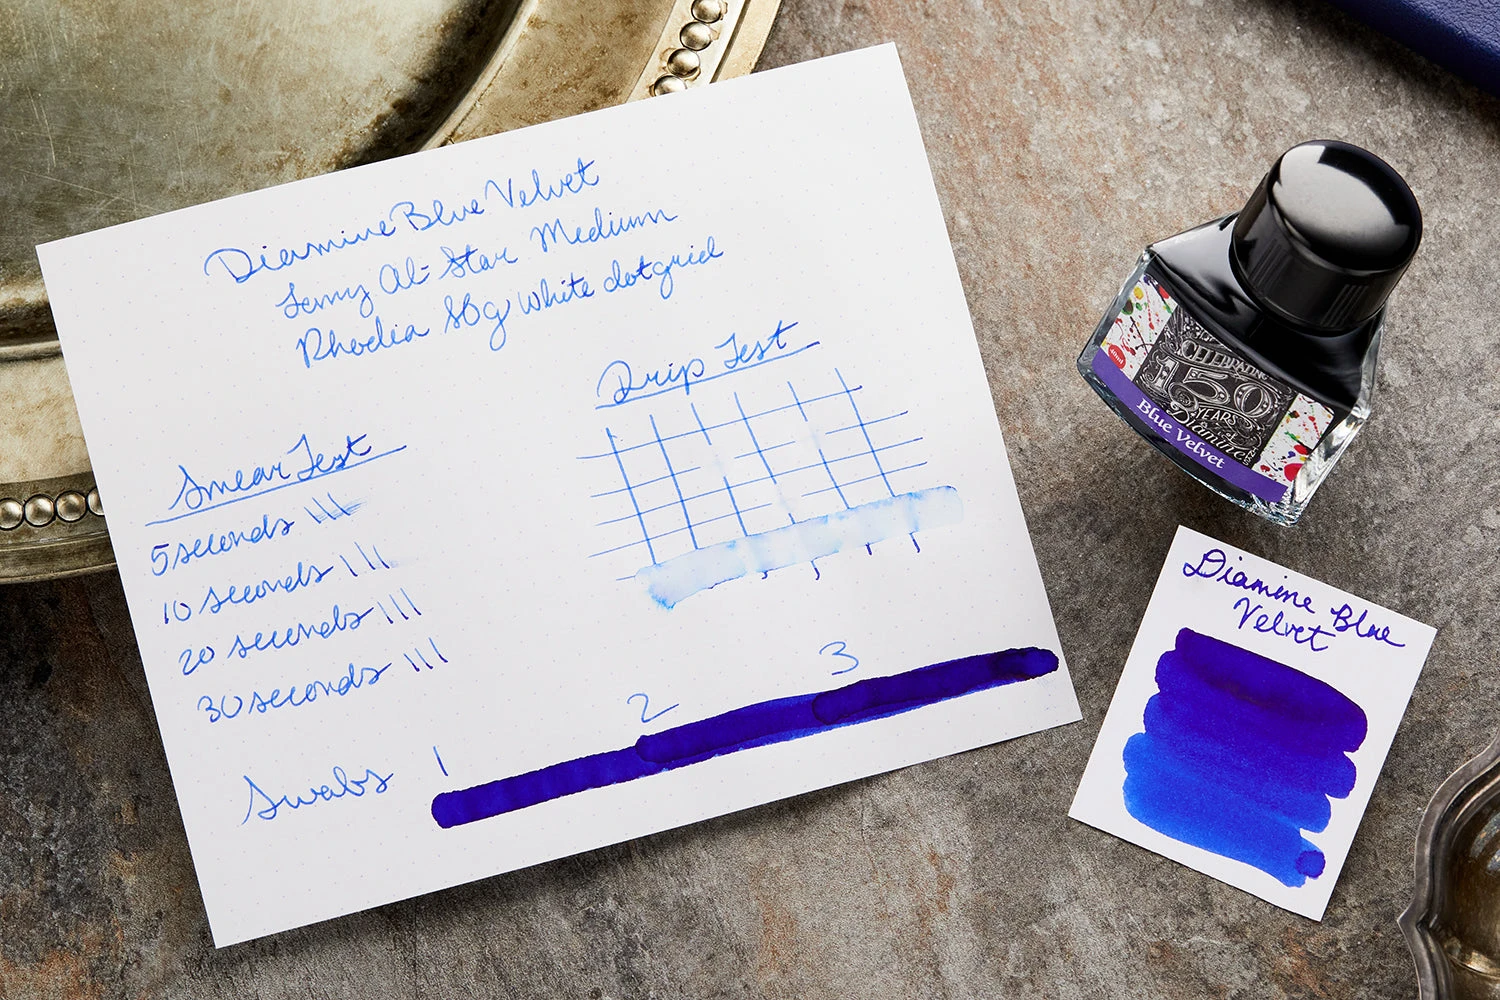 Diamine Blue Velvet
Lamy Al-Star Medium
Rhodia 80g white dotgrid
Drip Test
Smear Test
5 seconds
10 seconds
20 seconds
30 seconds
Swabs 1 2 3
CELEBRATING
150
YEARS
Diamine
Blue Velvet
Diamine Blue
Velvet